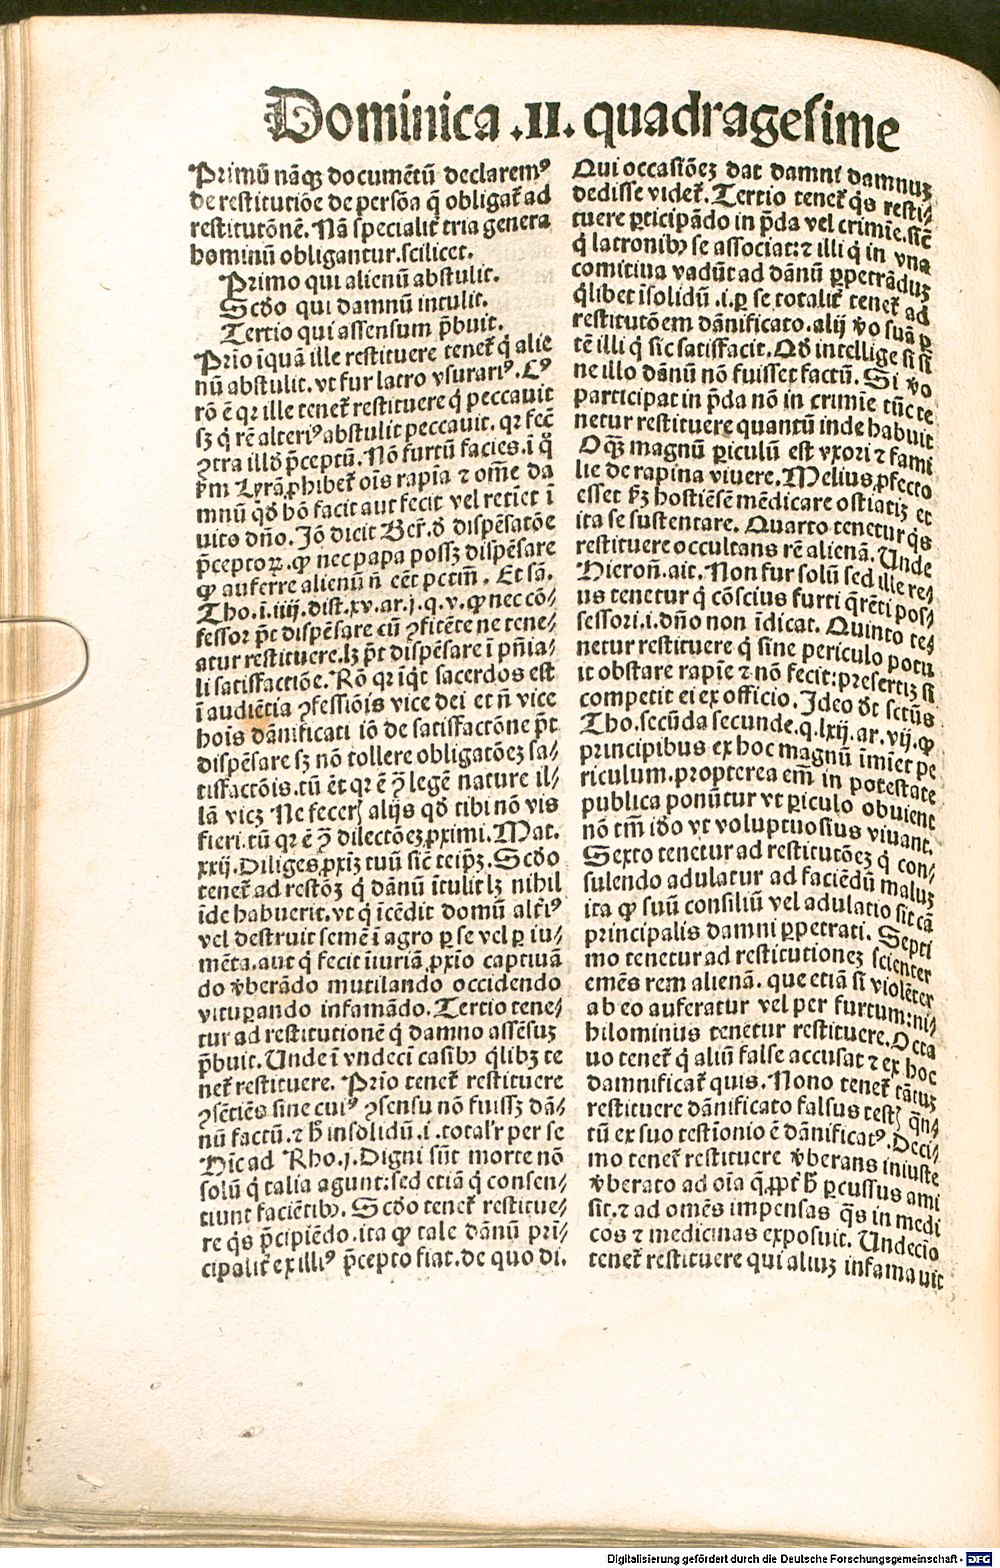 Dominica .II. quadragesime
Primū nāqꝫ documētū declaremꝰ
de restitutiōe de persōa q̄ obligat̄ ad
restitutōnē. Nā specialit̄ tria genera
hominū obligantur.scilicet.
Primo qui alienū abstulit.
Scd̄o qui damnū intulit.
Tertio qui assensum p̄buit.
Prīo inquā ille restituere tenet̄ q̇ alie
nū abstulit. vt fur latro vsurariꝰ. Cꝰ
rō ē qꝛ ille tenet̄ restituere q̇ peccauit
sꝫ q̇ rē alteriꝰ abstulit peccauit. qꝛ fec̄
ꝯtra illd̄ p̄ceptū. Nō furtū facies. ī q̊
ẜm Lyrā ꝓhibet̄ oīs rapīa ⁊ om̄e da
mnū qd̄ hō facit aut fecit vel retīet ī
uito dn̄o. Jō dicit Ber̄. d̄ dispēsatōe
p̄ceptoꝝ. ꝙ nec papa possꝫ dispēsare
ꝙ auferre alienū n̄ eēt pctm̄. Et sā.
Tho. ī. iiij. dist. xv. ar. j. q. v. ꝙ nec cō⸗
fessor pt̄ dispēsare cū ꝯfitēte ne tene⸗
atur restituere. lꝫ pt̄ dispēsare ī pn̄ia⸗
li satisfactiōe. Rō qꝛ īqt̄ sacerdos est
ī audiētia ꝯfessiōis vice dei et n̄ vice
hoīs dānificati iō de satisfactōne pt̄
dispēsare sꝫ nō tollere obligatōeꝫ sa⸗
tisfactōis. tū ēt qꝛ ē ꝯ̄ legē nature il⸗
lā vicꝫ Ne fecerꝭ alijs qd̄ tibi nō vis
fieri. tū qꝛ ē ꝯ̄ dilectōeꝫ ꝓximi. Mat.
xxij. Diliges ꝓxīꝫ tuū sic̄ teip̄ꝫ. Scd̄o
tenet̄ ad restōꝫ q̇ dānū ītulit lꝫ nihil
īde habuerit. vt q̇ īcēdit domū alt̄iꝰ
vel destruit semē ī agro ꝑ se vel ꝑ iu⸗
mēta. aut q̇ fecit īiuriā ꝓxīo captiuā
do v̄berādo mutilando occidendo
vituꝑando infamādo. Tertio tene⸗
tur ad restitutionē q̇ damno assēsuꝫ
p̄buit. Unde ī vndeci casibꝰ q̇libꝫ te
net̄ restituere. Prīo tenet̄ restituere
ꝯsētiēs sine cuiꝰ ꝯsensu nō fuissꝫ dā⸗
nū factū. ⁊ h̄ insolidū .i. total'r per se
Hīc ad Rho. j. Digni sūt morte nō
solū q̇ talia agunt: sed etiā q̇ consen⸗
tiunt faciētibꝰ. Scd̄o tenet̄ restitue⸗
re q̇s p̄cipiēdo. ita ꝙ tale dānū prī⸗
cipalit̄ ex illiꝰ p̄cepto fiat. de quo di.
Qui occasiōeꝫ dat damni damnuꝫ
dedisse videt̄. Tertio tenet̄ q̇s resti⸗
tuere ꝑticipādo in p̄da vel crimīe. sic̄
q̇ latronibꝰ se associat: ⁊ illi q̇ in vna
comitiua vadūt ad dānū ꝑpetrāduꝫ
q̇libet īsolidū .i. ꝑ se totalit̄ tenet̄ ad
restitutōem dānificato. alij v̄o suā ꝑ
tē illi q̇ sic satisfacit. Qd̄ intellige si si
ne illo dānū nō fuisset factū. Si v̄o
participat in p̄da nō in crimīe tūc te
netur restituere quantū inde habuit
O qꝫ magnū ꝑiculū est vxori ⁊ fami
lie de rapina viuere. Melius ꝓfecto
esset ẜꝫ hostiēsē mēdicare ostiatiꝫ et
ita se sustentare. Quarto tenetur q̇s
restituere occultans rē alienā. Unde
Hieron̄. ait. Non fur solū sed ille re⸗
us tenetur q̇ cōscius furti q̄rēti pos⸗
sessori. i. dn̄o non īdicat. Quinto te⸗
netur restituere q̇ sine periculo potu
it obstare rapīe ⁊ nō fecit: presertiꝫ si
competit ei ex officio. Jdeo dt̄ sctūs
Tho. secūda secunde. q. lxij. ar. vij. ꝙ
principibus ex hoc magnū īmiet pe
riculum. propterea em̄ in potestate
publica ponūtur vt ꝑiculo obuient
nō tm̄ id̄o vt voluptuosius viuant.
Sexto tenetur ad restitutōeꝫ q̇ con⸗
sulendo adulatur ad faciēdū maluꝫ
ita ꝙ suū consiliū vel adulatio sit cā
principalis damni ꝑpetrati. Septi
mo tenetur ad restitutioneꝫ scienter
emēs rem alienā. que etiā si violēter
ab eo auferatur vel per furtum: ni⸗
hilominus tenetur restituere. Octa
uo tenet̄ q̇ aliū false accusat ⁊ ex hoc
damnificat̄ quis. Nono tenet̄ tātuꝫ
restituere dānificato falsus testꝭ q̄n⸗
tū ex suo testīonio ē dānificatꝰ. Deci⸗
mo tenet̄ restituere v̄berans iniuste
v̄berato ad oīa q̄ ꝓpt̄ h̄ ꝑcussus ami
sit. ⁊ ad omēs impensas q̄s in medi
cos ⁊ medicinas exposuit. Undecio
tenet̄ restituere qui aliuꝫ infamauit
Digitalisierung gefördert durch die Deutsche Forschungsgemeinschaft - DFG